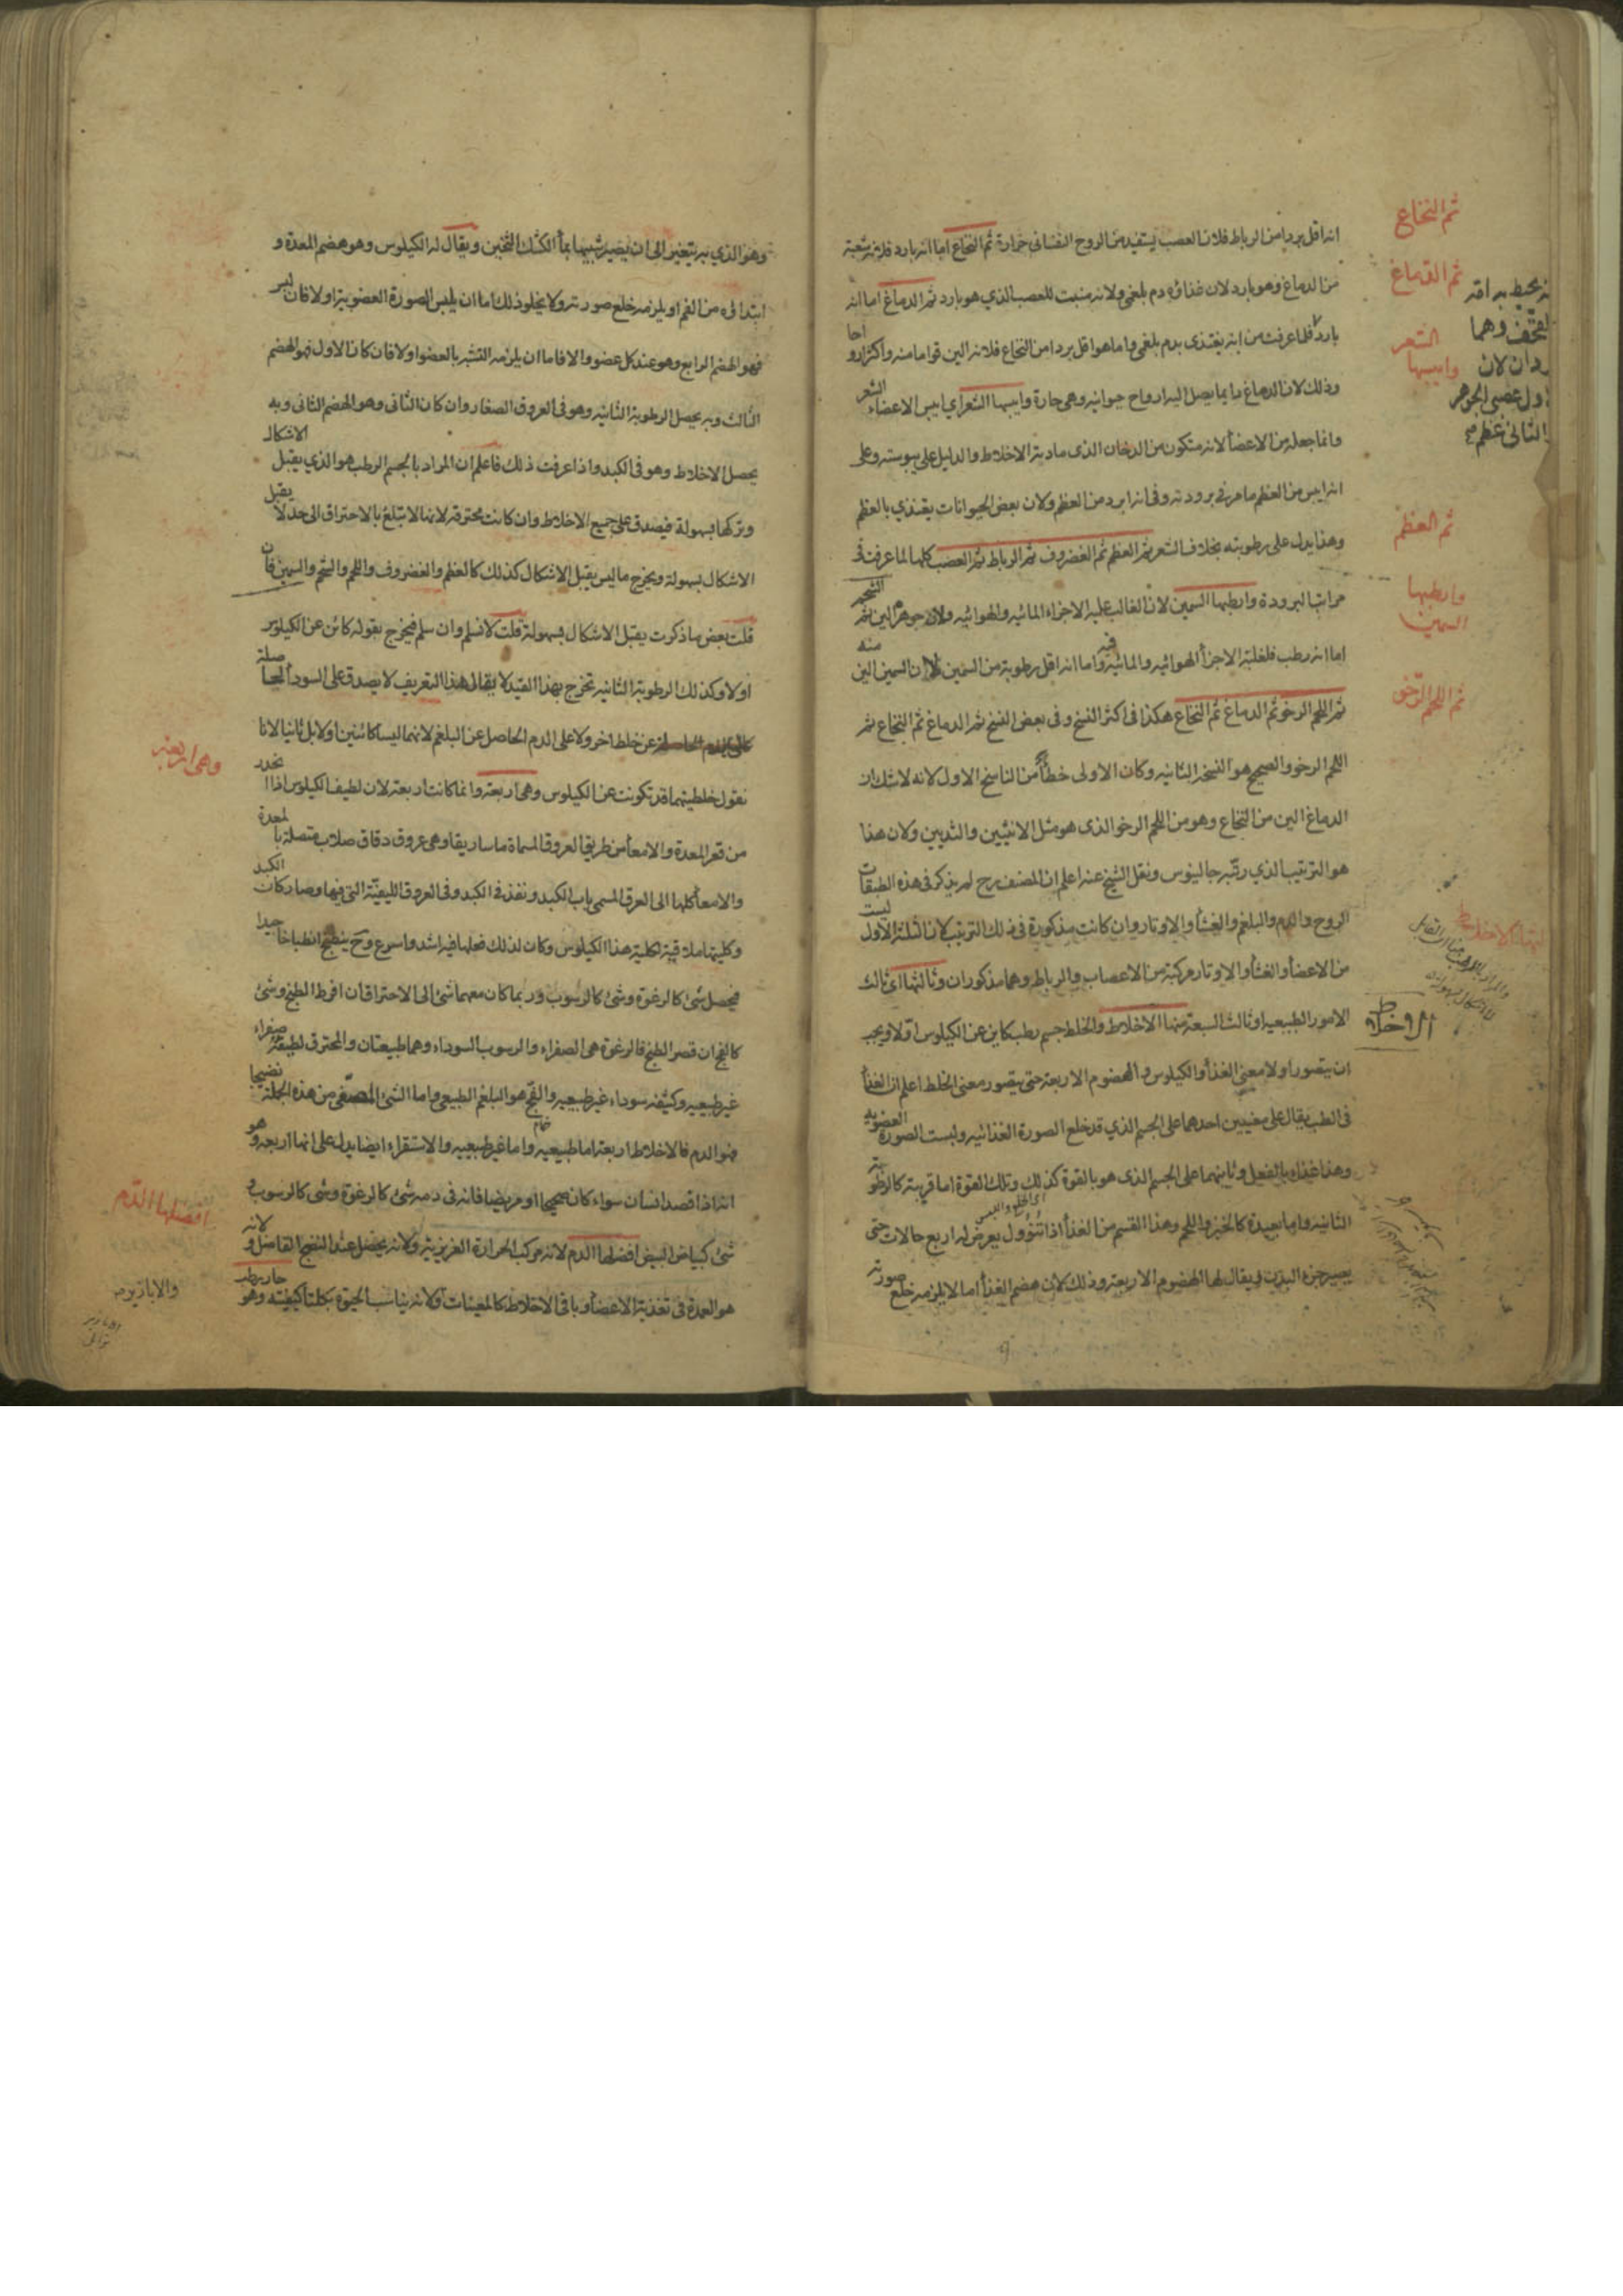 انه اقل بردا من الرباط فلان العصب يستفيد من الروح النفسانى حرارة ثم النخاع اما انه بارد فلانه شعبة
من الدماغ وهو بارد لان غذاؤه دم بلغمى ولانه منبت للعصب الذي هو بارد ثم الدماغ اما انه
بارد فلما عرفت من انه يغتذى بدم بلغمى واما هو اقل بردا من النخاع فلانه الين قواما منه واكثر ارواحا
وذلك لان الدماغ دايما يصل اليه ارواح حيوانيه وهى حارة وايبسها الشعر اي ايبس الاعضاء الشعر
وانما جعله من الاعضأ لانه متكون من الدخان الذى مادته الاخلاط والدليل على يبوسته وعلى
انه ايبس من العظم ما مر فى برودته وفى انه ابرد من العظم ولان بعض الحيوانات يغتذي بالعظم
وهذا يدل على رطوبته بخلاف الشعر ثم العظم ثم الغضروف ثم الرباط ثم العصب كلها لما عرفت فى
مراتب البرودة وارطبها السمين لان الغالب عليه الاجزاء المائيه والهوائيه ولان جوهره الين ثم الشحم
اما انه رطب فلغلبة الاجزأ الهوائيه والمائية فيه واما انه اقل رطوبة من السمين فلان السمين الين منه
ثم اللحم الرخو ثم الدماغ ثم النخاع هكذا فى اكثر النسخ وفى بعض النسخ ثم الدماغ ثم النخاع ثم
اللحم الرخو والصحيح هو النسخة الثانيه وكان الاولى خطأ من الناسخ الاول لانه لا شك ان
الدماغ الين من النخاع وهو من اللحم الرخو الذى هو مثل الانثيين والثديين ولان هذا
هو الترتيب الذي رتبه جالينوس ونقل الشيخ عنه اعلم ان المصنف رح لم يذكر فى هذه الطبقات
الروح والدم والبلغم والغشأ والاوتار وان كانت مذكورة فى ذلك الترتيب لان الثلثة الاول ليست
من الاعضأ والغشأ والاوتار مركبة من الاعصاب والرباط وهما مذكوران وثالثها اى ثالث
الامور الطبيعيه او ثالث السبعة منها الاخلاط والخلط جسم رطب كاين عن الكيلوس اوّلا ويجب
ان يتصور اولا معنى الغذأ والكيلوس والهضوم الاربعة حتى يتصور معنى الخلط اعلم ان الغذأ
فى الطب يقال على معنيين احدهما على الجسم الذي قد خلع الصورة الغذائيه ولبست الصورة العضويه
وهذا غذاء بالفعل وثانيهما على الجسم الذى هو بالقوة كذلك وتلك القوة اما قريبة كالرطوبة
الثانيه واما بعيدة كالخبز واللحم وهذا القسم من الغذأ اذا تنوول يعرض له اربع حالات حتى
يصير جزء البدن يقال لها الهضوم الاربعة وذلك لان هضم الغذأ اما لا يلزمه خلع صورته
ثم النخاع
ثم الدماغ
الشعر
وايبسها
ثم العظم
وارطبها
السمين
ثم اللحم الرّخو
الاخلاط
وهو الذي به يتغير الى ان يصير شبيها بمأ الكشك الثخين ويقال له الكيلوس وهو هضم المعدة و
ابتداؤه من الفم او يلزمه خلع صورته ولا يخلو ذلك اما ان يلبس الصورة العضوية او لا فان لبس
فهو الهضم الرابع وهو عند كل عضو والا فاما ان يلزمه التشبه بالعضو او لا فان كان الاول فهو الهضم
الثالث وبه يحصل الرطوبة الثانيه وهو فى العروق الصغار وان كان الثانى وهو الهضم الثانى وبه
يحصل الاخلاط وهو فى الكبد واذا عرفت ذلك فاعلم ان المراد بالجسم الرطب هو الذي يقبل الاشكال
وتركها بسهولة فيصدق على جميع الاخلاط وان كانت محترقة لانها لا تبلغ بالاحتراق الى حد لا يقبل
الاشكال بسهولة ويخرج ما ليس يقبل الاشكال كذلك كالعظم والغضروف واللحم والشحم والسمين فان
قلت بعض ما ذكرت يقبل الاشكال بسهولة قلت لا نسلم وان سلم فيخرج بقوله كائن عن الكيلوس
اولا وكذلك الرطوبة الثانيه تخرج بهذا القيد لا يقال هذا التعريف لا يصدق على السودأ الحاصلة
عن خلط اخر ولا على الدم الحاصل عن البلغم لانهما ليسا كائنين اولا بل ثانيا لانا
نقول خلطيتهما قد تكونت عن الكيلوس وهى اربعة وانما كانت اربعة لان لطيف الكيلوس اذا انحدر
من قعر المعدة والامعأ من طريق العروق المسماة ماساريقا وهى عروق دقاق صلاب متصلة بالمعدة
والامعأ كلها الى العرق المسمى باب الكبد ونفذ فى الكبد وفى العروق الليفيّة التى فيها وصار كان الكبد
وكليتها ملاقية لكلية هذا الكيلوس وكان لذلك فعلها فيه اشد واسرع وح ينطبخ انطباخا جيدا
فيحصل شئ كالرغوة وشئ كالرسوب وربما كان معهما شئ الى الاحتراق ان افرط الطبخ وشئ
كالفج ان قصر الطبخ فالرغوة هى الصفراء والرسوب السوداء وهما طبيعتان والمحترق لطيفه صفراء
غير طبيعيه وكثيفه سوداء غير طبيعيه والفج هو البلغم الطبيعى واما الشئ المصفّى من هذه الجملة نضيجا
فهو الدم فالاخلاط اربعة اما طبيعيه واما غير طبيعيه والاستقراء ايضا يدل على انها اربعه وهو
انه اذا فصد انسان سواء كان صحيحا او مريضا فانه فى دمه شئ كالرغوة وشئ كالرسوب و
شئ كبياض البيض افضلها الدم لانه مركب الحرارة الغريزيه ولانه يحصل عند النضج الفاضل ولانه
هو العمدة فى تغذية الاعضأ وباقى الاخلاط كالمعينات ولانه يناسب الحيوة بكلتا كيفيته وهو حار رطب
وهى اربعة
افضلها الدّم